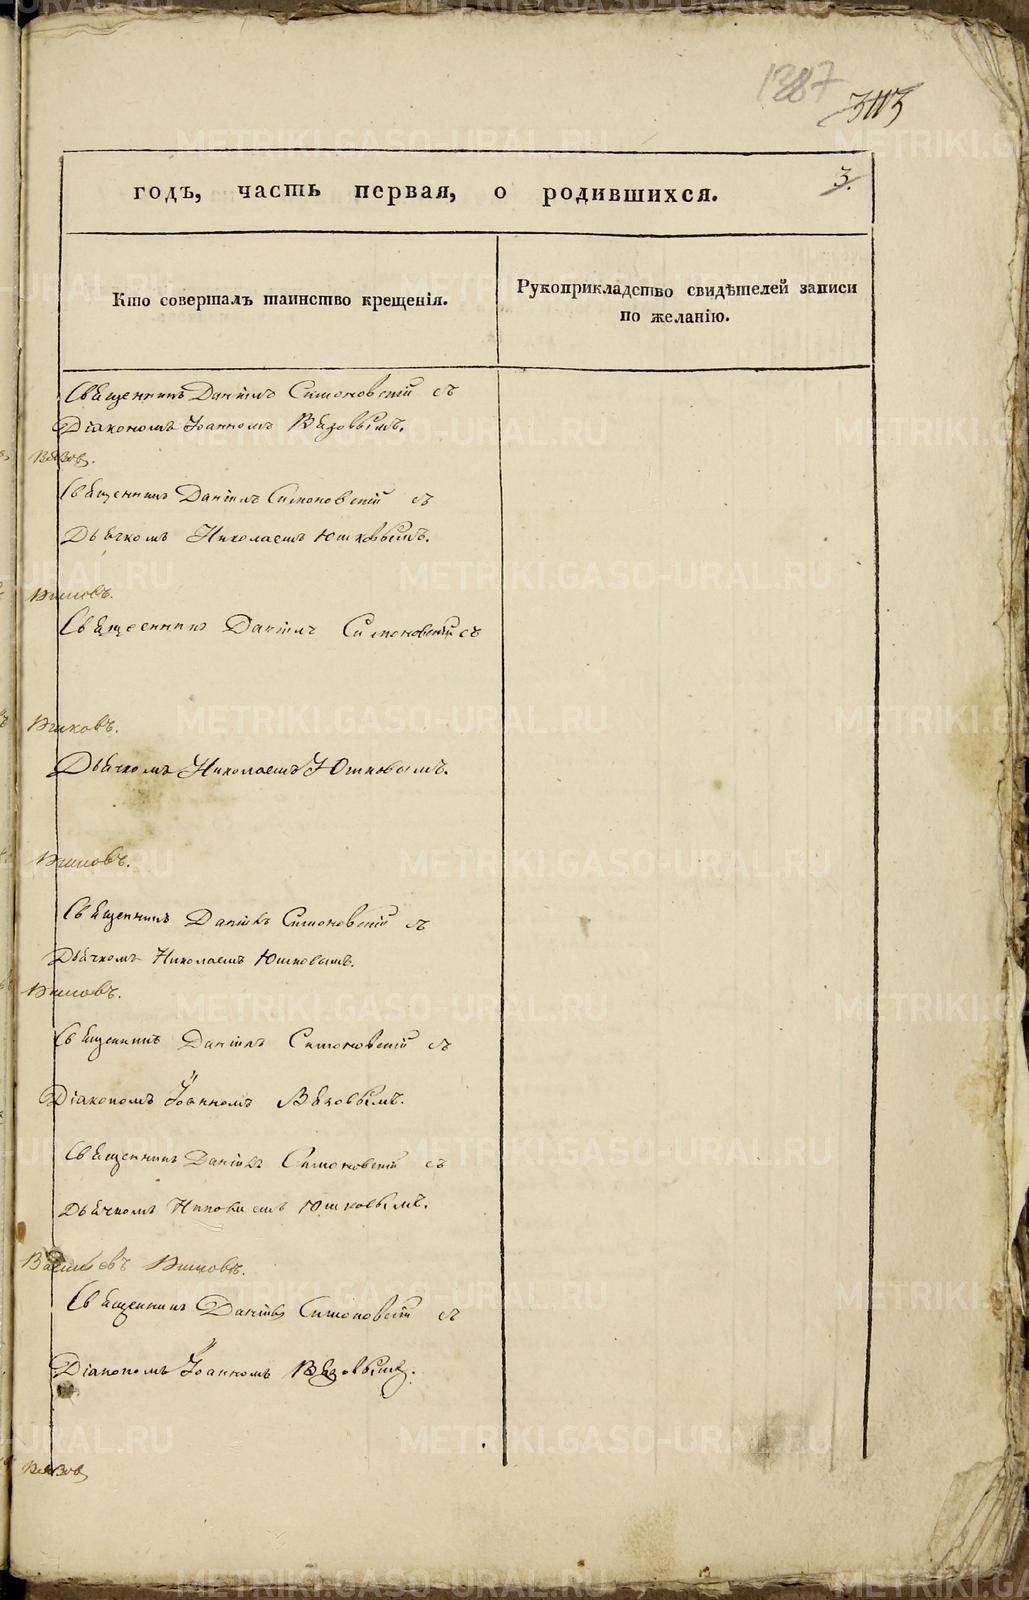 1387
годъ, часть первая, о родившихся.
3.
Кто совершалъ таинство крещенія.
Рукоприкладство свидѣтелей записи
по желанію.
Священникъ Даніилъ Симоновскій съ
Діакономъ Іоанномъ Вязовымъ.
Вязов
Священникъ Даніилъ Симоновскій съ
Дьячкомъ Николаемъ Юшковымъ.
Юшковъ.
Священникъ Даніилъ Симоновскій съ
Юшковъ.
Дьячкомъ Николаемъ Юшковымъ.
Юшковъ.
Священникъ Даніилъ Симоновскій съ
Дьячкомъ Николаемъ Юшковымъ.
Юшковъ.
Священникъ Даніилъ Симоновскій съ
Діакономъ Іоанномъ Вязовымъ.
Священникъ Даніилъ Симоновскій съ
Дьячкомъ Николаемъ Юшковымъ.
Юшковъ.
Священникъ Даніилъ Симоновскій съ
Діакономъ Іоанномъ Вязовымъ.
Вязов
METRIKI.GASO-URAL.RU